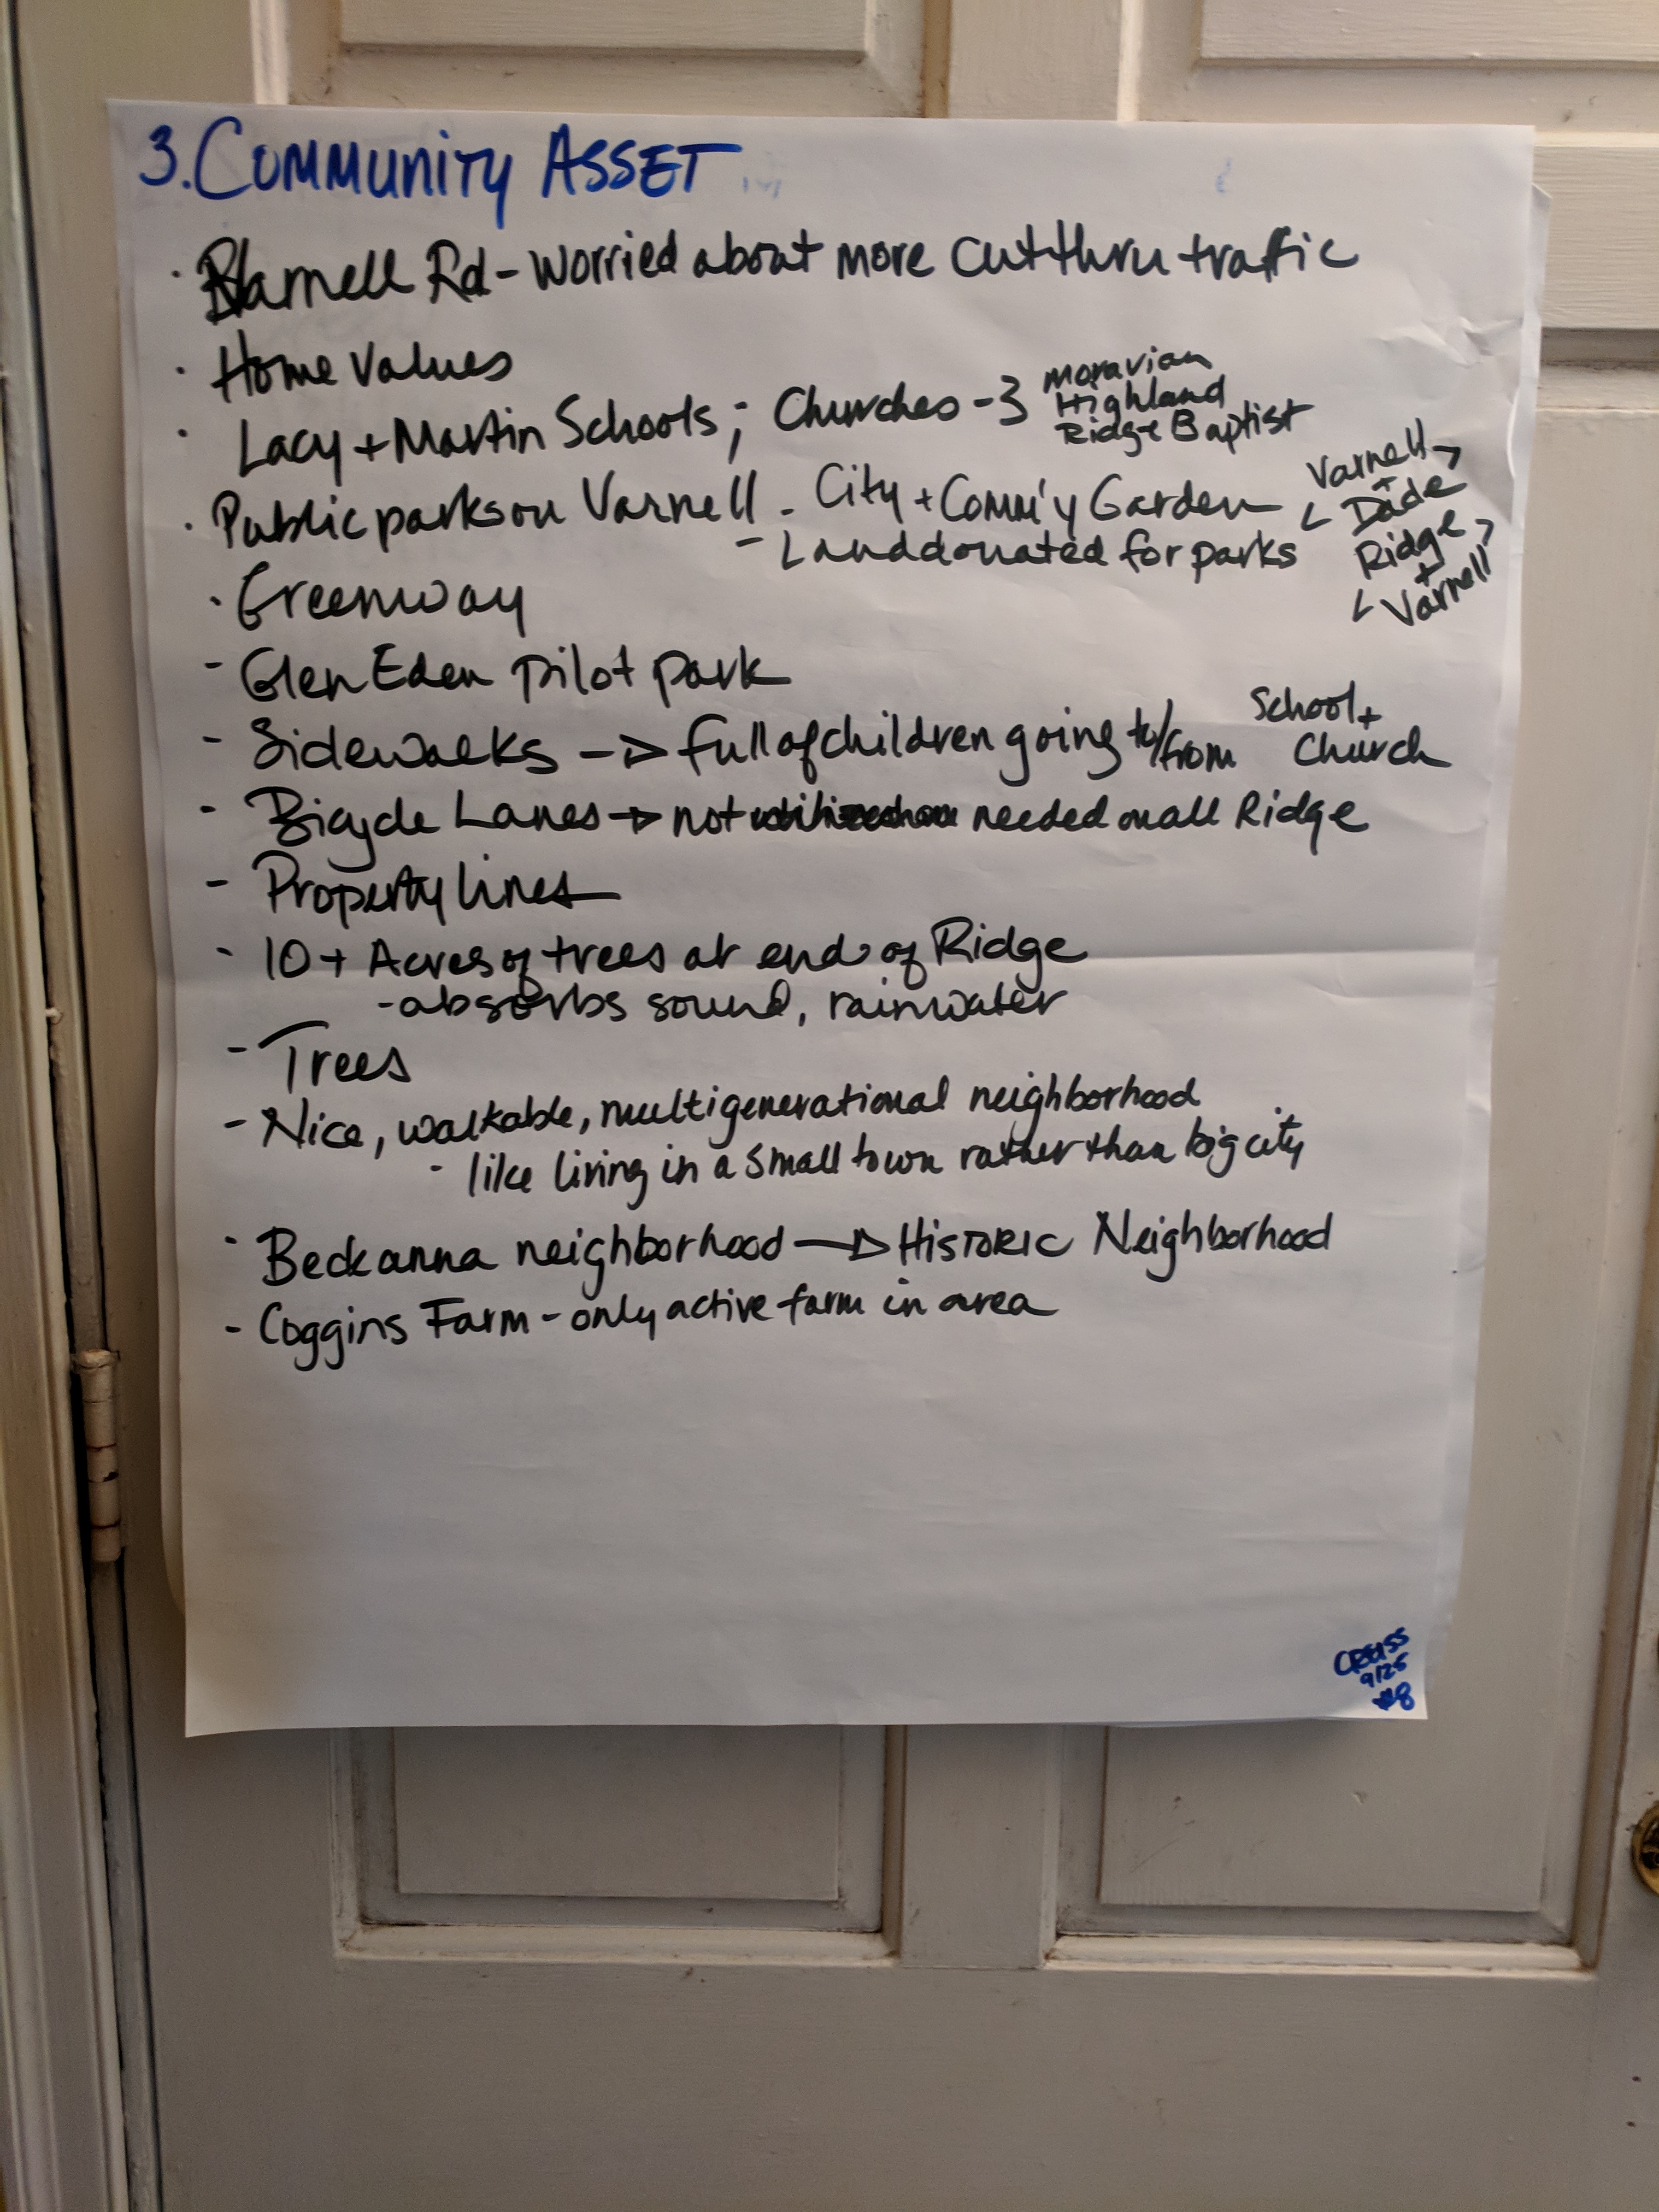 3. COMMUNITY ASSET
· Rd - Worried about more cut thru traffic
· Home Values
· Lacy + Martin Schools; Churches - 3 Moravian
Highland
Ridge Baptist
· Public parks on Varnell - City + Comm'y Garden < Varnell + Dade >
- Land donated for parks < Ridge + Varnell >
· Greenway
- Glen Eden pilot park
- Sidewalks -> full of children going to/from School + Church
- Bicycle Lanes -> not needed on all Ridge
- Property lines
- 10+ Acres of trees at end of Ridge
- absorbs sound, rainwater
- Trees
- Nice, walkable, multigenerational neighborhood
- like living in a small town rather than big city
- Beckanna neighborhood -> Historic Neighborhood
- Coggins Farm - only active farm in area
9/25
#8